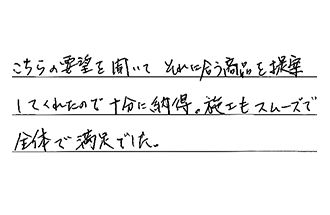 こちらの要望を聞いて それに合う商品を提案
してくれたので十分に納得。施工もスムーズで
全体で満足でした。